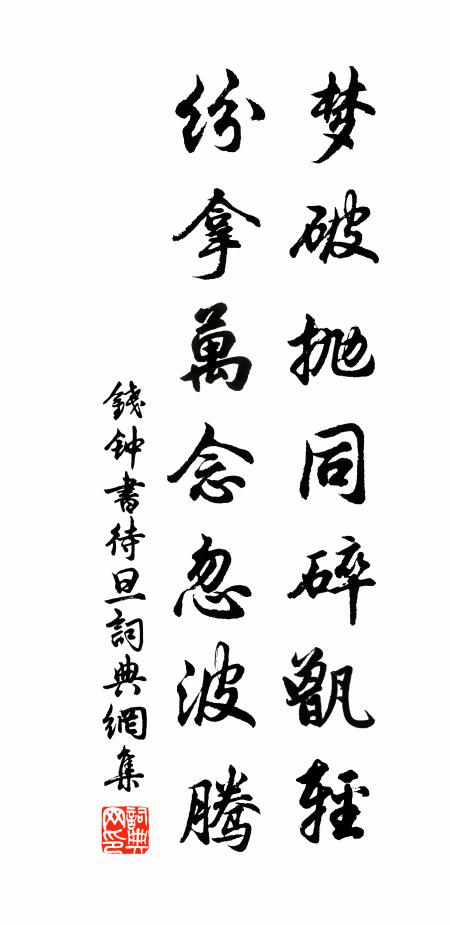 梦破抛同碎甑轻
纷拿萬念忽波腾
錢钟書待旦詞典網集
詞典网印